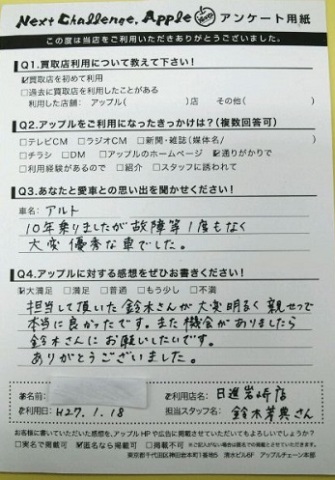 Next Challenge, Apple アンケート用紙
この度は当店をご利用いただきありがとうございました。
Q1.買取店利用について教えて下さい!
☑買取店を初めて利用
□過去に買取店を利用したことがある
利用した店舗: アップル( )店 その他( )
Q2.アップルをご利用になったきっかけは?(複数回答可)
□テレビCM □ラジオCM □新聞・雑誌(媒体名/ )
□チラシ □DM □アップルのホームページ ☑通りがかりで
□利用経験があるので □紹介 □スタッフに誘われて
Q3.あなたと愛車との思い出を聞かせください!
車名: アルト
10年乗りましたが故障等1度もなく
大変優秀な車でした。
Q4.アップルに対する感想をぜひお書きください!
☑大満足 □満足 □普通 □もう少し □不満
担当して頂いた鈴木さんが大変明るく親せつで
本当に良かったです。また機会がありましたら
鈴木さんにお願いしたいです。
ありがとうございました。
お名前:
ご利用店名: 日進岩崎店
ご利用日: H27.1.18
担当スタッフ名: 鈴木芳典さん
お客様に書いていただいた感想を、アップルHPや広告に掲載させていただいてもよろしいでしょうか?
□実名で掲載可 ☑匿名なら掲載可 □掲載不可
東京都千代田区神田岩本町1番地5 清水ビル6F アップルチェーン本部